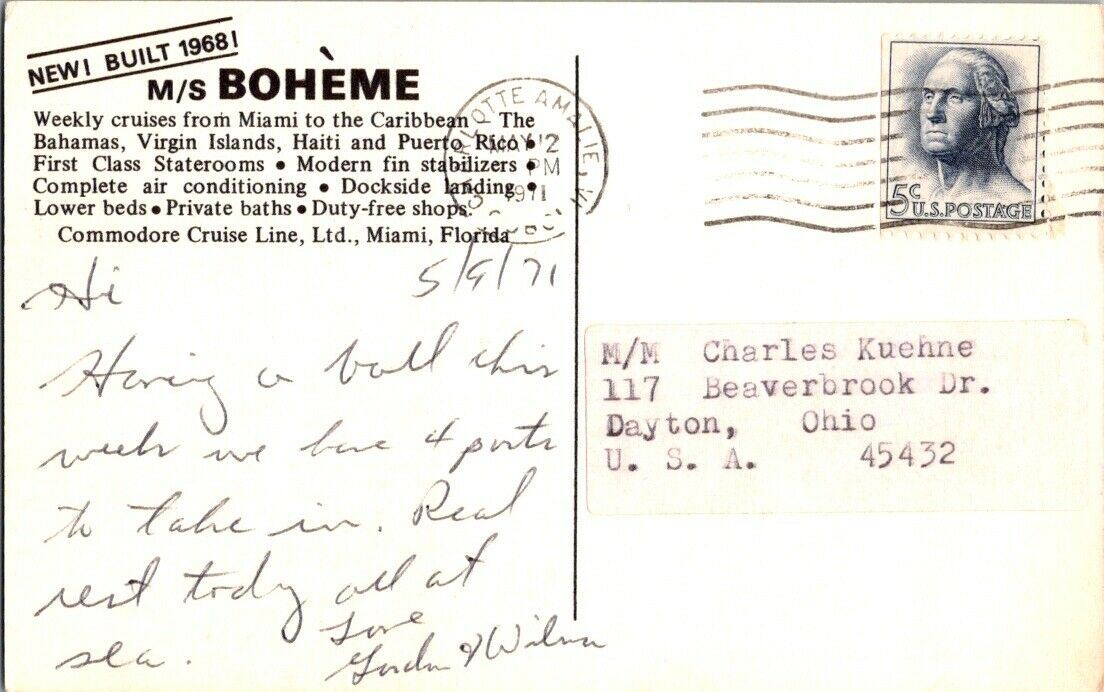 NEW! BUILT 1968!
M/S BOHÈME
Weekly cruises from Miami to the Caribbean • The
Bahamas, Virgin Islands, Haiti and Puerto Rico •
First Class Staterooms • Modern fin stabilizers •
Complete air conditioning • Dockside landing •
Lower beds • Private baths • Duty-free shops.
Commodore Cruise Line, Ltd., Miami, Florida
CHARLOTTE AMALIE, V.I.
MAY 12
PM
1971
5c
U.S. POSTAGE
5/9/71
Hi
Having a ball this
week we have 4 ports
to take in. Real
rest today all at
sea.
Love
Gordon & Wilma
M/M Charles Kuehne
117 Beaverbrook Dr.
Dayton, Ohio
U. S. A. 45432